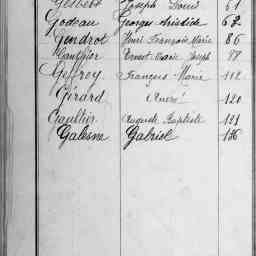 Gerbert Joseph Louis 61
Godeau Georges Aristide 62
Gendrot Henri François Marie 86
Gauthier Ernest Marie Joseph 87
Geffroy François Marie 112
Gérard André 120
Gaultier Auguste Baptiste 121
Galesne Gabriel 136